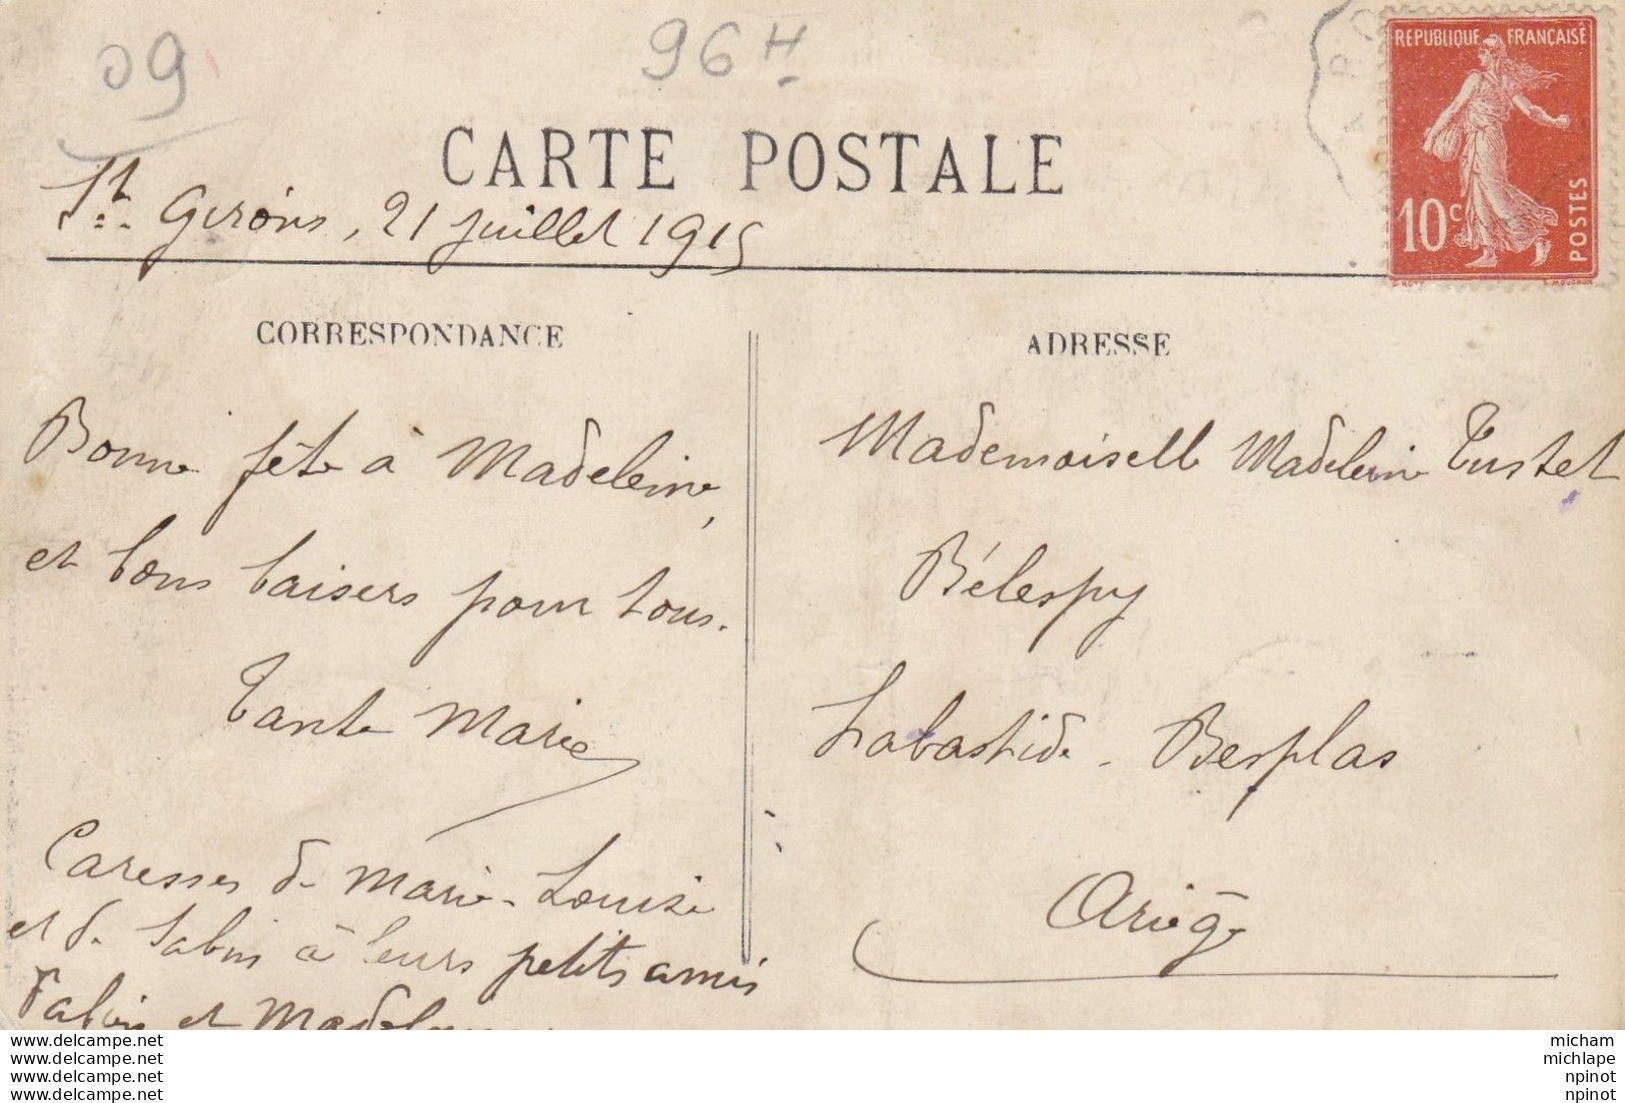 09
96 H
REPUBLIQUE FRANÇAISE
10 c
POSTES
CARTE POSTALE
St. Girons, 21 juillet 1915
CORRESPONDANCE
Bonne fête à Madeleine,
et bons baisers pour tous.
Tante Marie
Caresses de Marie-Louise
et de Sabin à leurs petits amis
Fabien et Madeleine
ADRESSE
Mademoiselle Madeleine Tustet
Bélespy
Labastide-Besplas
Ariège
www.delcampe.net
www.delcampe.net
www.delcampe.net
www.delcampe.net
micham
michlape
npinot
npinot